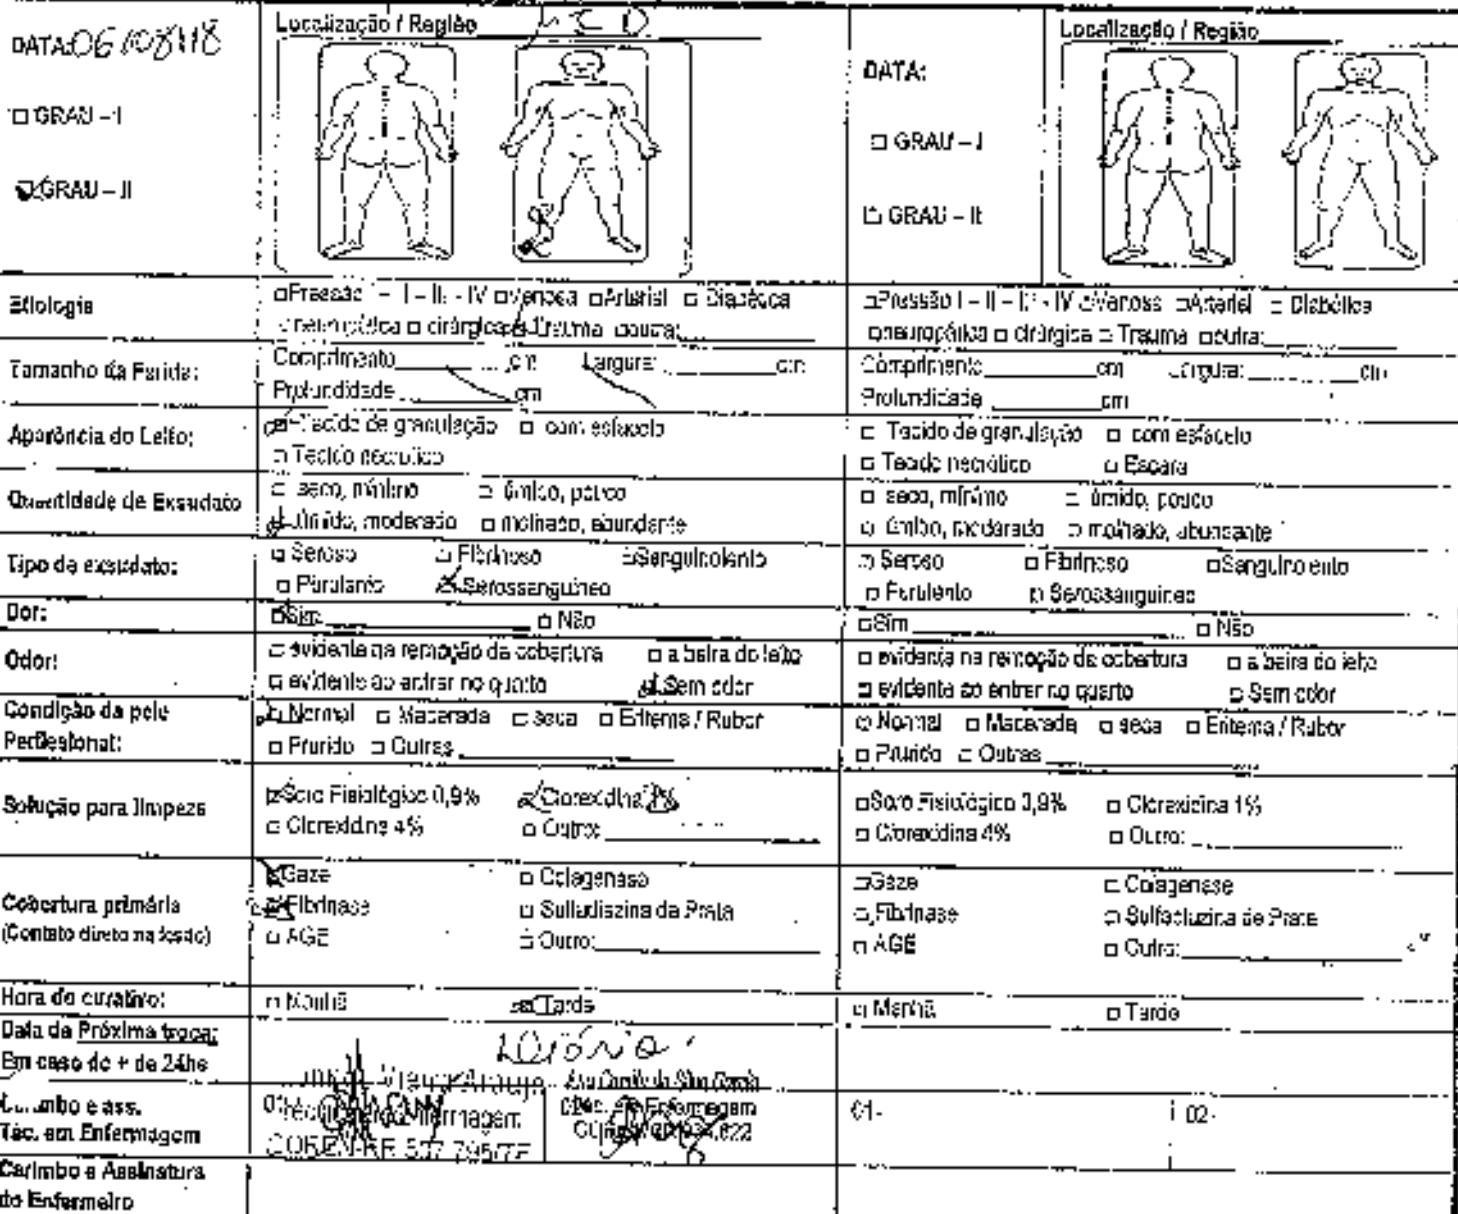 DATA: 06/08/18
□ GRAU – I
☑ GRAU – II
Localização / Região
DATA:
□ GRAU – I
□ GRAU – II
Localização / Região
Etiologia
□ Pressão I – II – III - IV □ Venosa □ Arterial □ Diabética
□ neuropática □ cirúrgica ☑ Trauma □ outra:
□ Pressão I – II – III - IV □ Venosa □ Arterial □ Diabética
□ neuropática □ cirúrgica □ Trauma □ outra:
Tamanho da Ferida:
Comprimento cm Largura: cm
Profundidade cm
Comprimento cm Largura: cm
Profundidade cm
Aparência do Leito:
☑ Tecido de granulação □ com esfacelo
□ Tecido necrótico
□ Tecido de granulação □ com esfacelo
□ Tecido necrótico □ Escara
Quantidade de Exsudato
□ seco, mínimo □ úmido, pouco
☑ úmido, moderado □ molhado, abundante
□ seco, mínimo □ úmido, pouco
□ úmido, moderado □ molhado, abundante
Tipo de exsudato:
□ Seroso □ Fibrinoso □ Sanguinolento
□ Purulento ☑ Serossanguineo
□ Seroso □ Fibrinoso □ Sanguinolento
□ Purulento □ Serossanguineo
Dor:
☑ Sim □ Não
□ Sim □ Não
Odor:
□ evidente na remoção da cobertura □ a beira do leito
□ evidente ao entrar no quarto ☑ Sem odor
□ evidente na remoção da cobertura □ a beira do leito
□ evidente ao entrar no quarto □ Sem odor
Condição da pele
Perilesional:
☑ Normal □ Macerada □ seca □ Eritema / Rubor
□ Prurido □ Outras
□ Normal □ Macerada □ seca □ Eritema / Rubor
□ Prurido □ Outras
Solução para limpeza
☑ Soro Fisiológico 0,9% ☑ Clorexidina
□ Clorexidina 4% □ Outro:
□ Soro Fisiológico 0,9% □ Clorexidina 1%
□ Clorexidina 4% □ Outro:
Cobertura primária
(Contato direto na lesão)
☑ Gaze □ Colagenase
☑ Fibrinase □ Sulfadiazina de Prata
□ AGE □ Outro:
□ Gaze □ Colagenase
□ Fibrinase □ Sulfadiazina de Prata
□ AGE □ Outra:
Hora do curativo:
□ Manhã ☑ Tarde
□ Manhã □ Tarde
Data da Próxima troca:
Em caso de + de 24hs
Carimbo e ass.
Téc. em Enfermagem
Enfermagem
COREN-RR
Enfermagem
01-
02-
Carimbo e Assinatura
do Enfermeiro